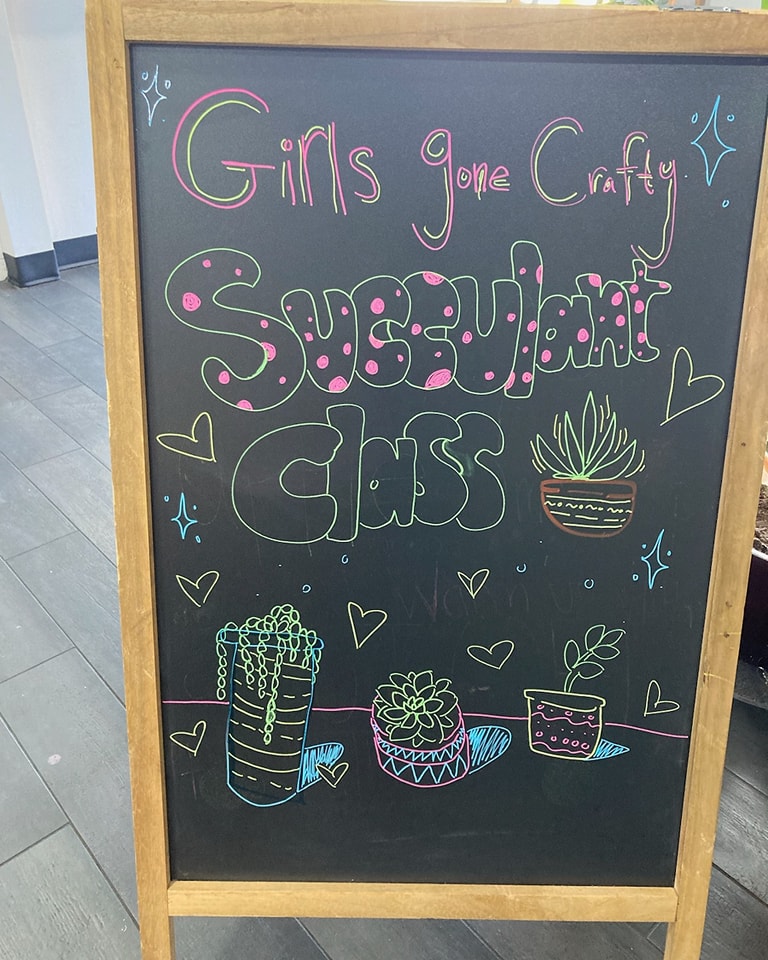 Girls gone Crafty
Succulant
Class